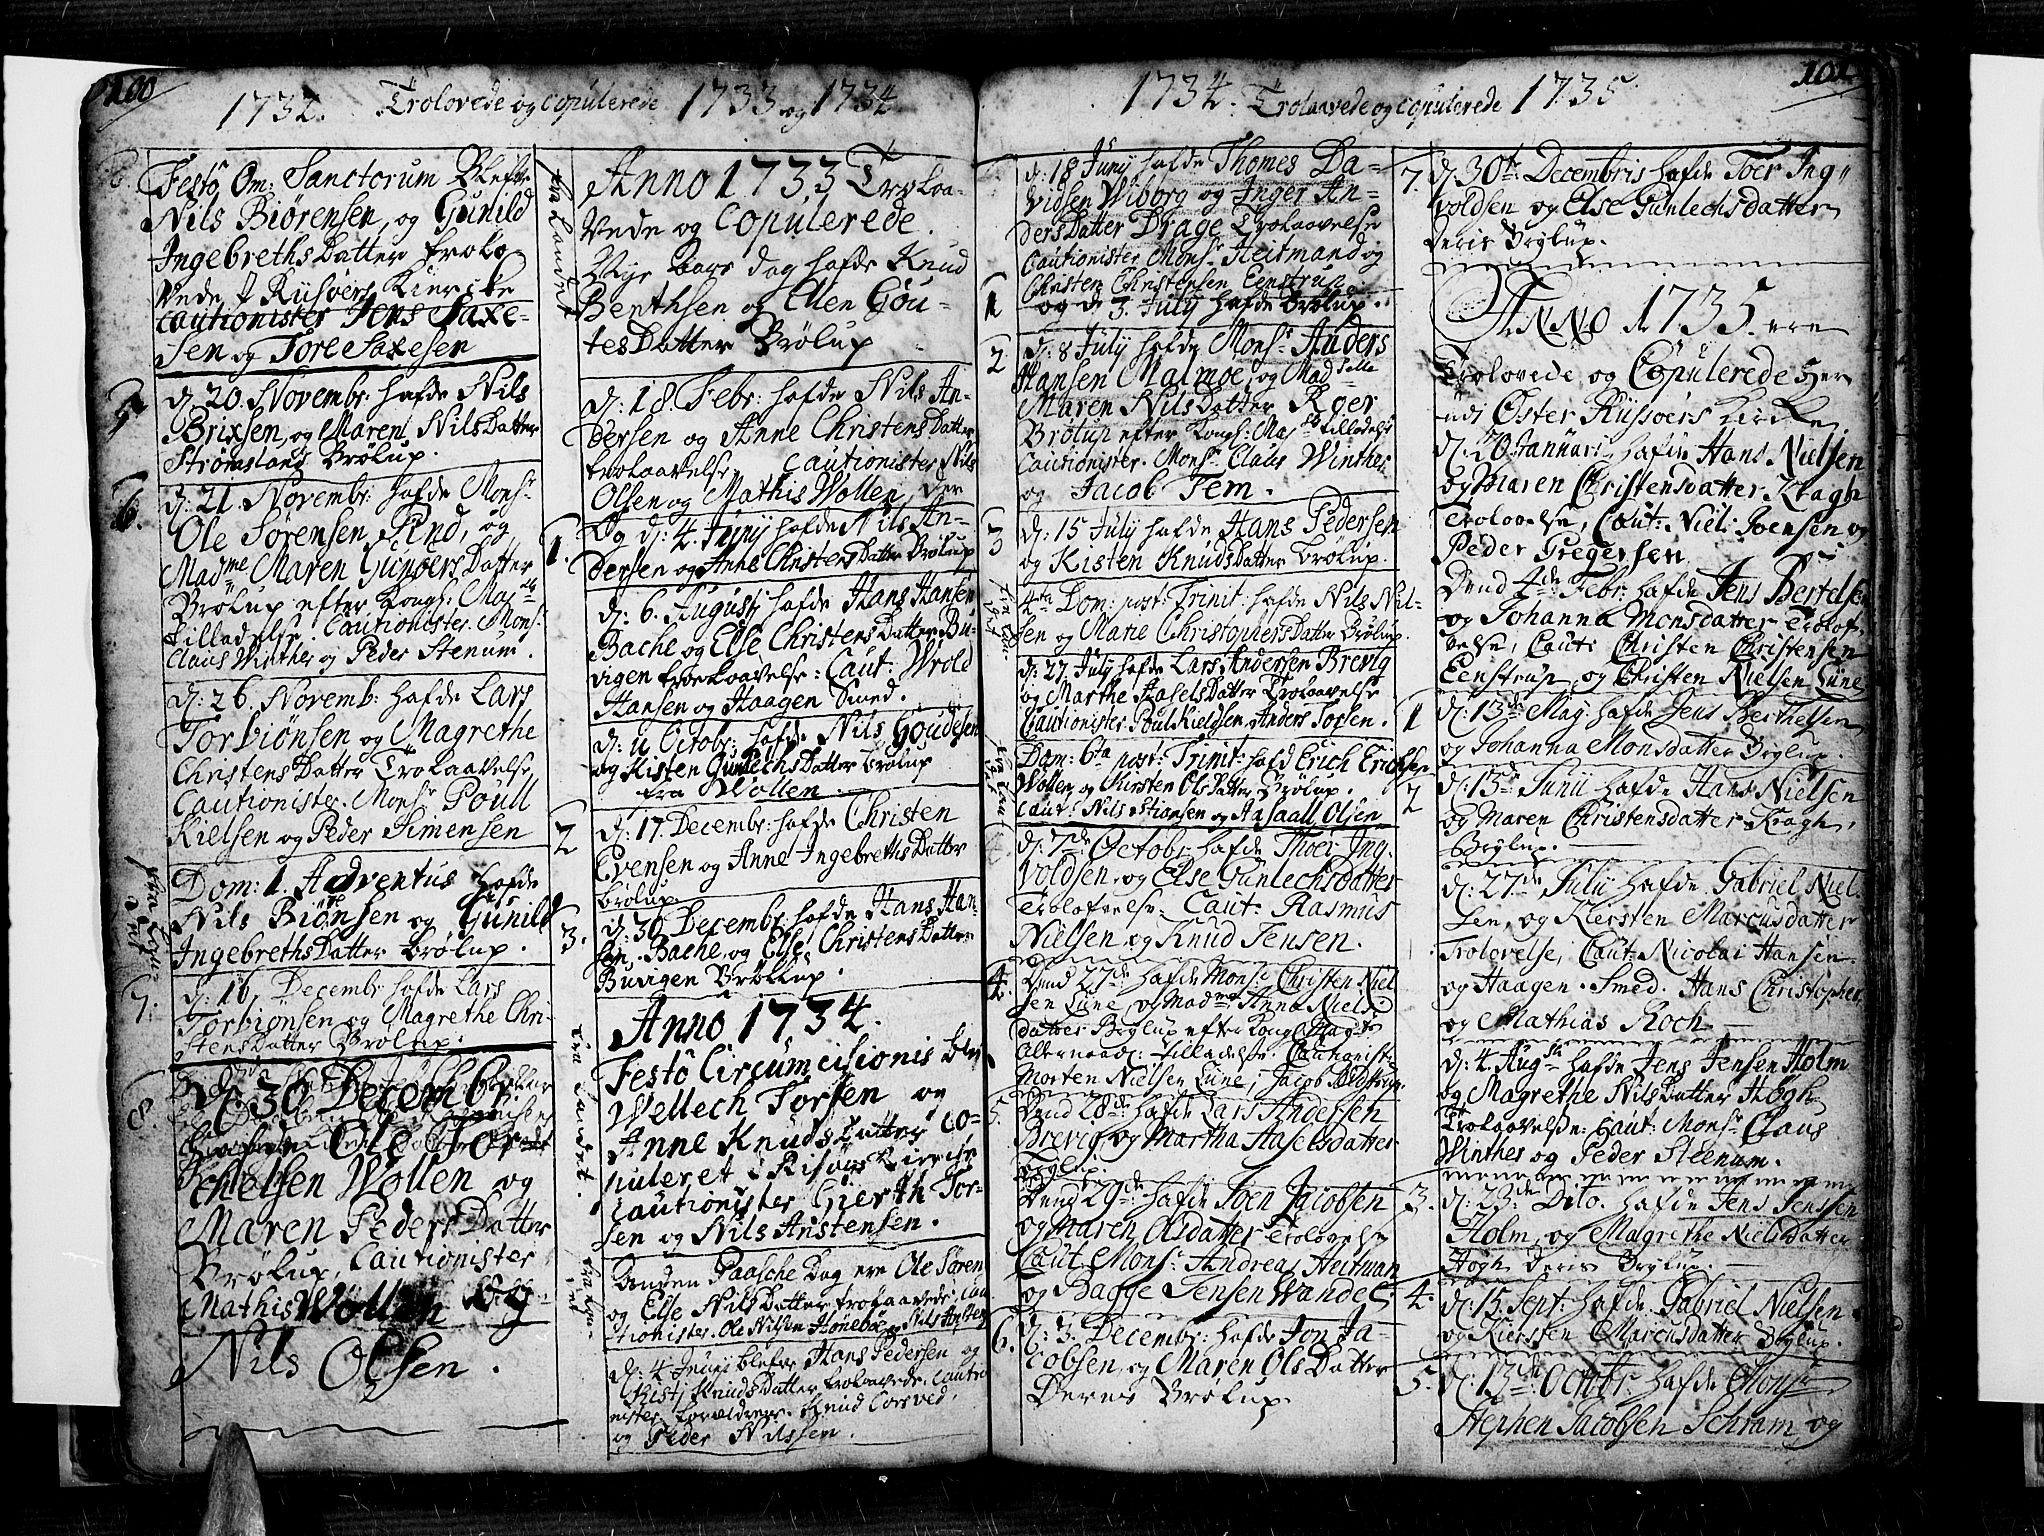 100
1732. Trolovede og Copulerede 1733 og 1734
Festo Om: Sanctorum Blefve
Nils Biörensen, og Gunild
IngebrethsDatter trolo
vede i Rüsøers Kiercke
Cautionister Jens Saxe-
sen og Tore Saxesen
5
d: 20. Novembr: hafde Nils
Brixsen, og Maren NilsDatter
Strømsland Brølup.
6.
d: 21. Novembr: hafde Monsr
Ole Sørensen Lind, og
Madme Maren GunersDatter
Brølup efter Kongl: Mays
Tilladelse. Cautionister. Mons:
Claus Winther og Peder Stenum.
d: 26. Novemb: hafde Lars
Torbiönsen og Magrethe
ChristensDatter Trolaavelse
Cautionister. Monsr Poüll
Kielsen og Peder Simensen
Dom: 1. Adventus hafde
Nils Biönsen og Gunild
IngebrethsDatter Brølup.
7.
d: 16. Decembr hafde Lars
Torbiönsen og Magrethe Chri-
stensDatter Brølup.
8.
d: 30 Decembr:
hafde Ole Tor
chelsen Wollen og
Maren PedersDatter
Brølup, Cautionister
Mathis Wollen og
Nils Olsen.
fra Landet
Anno 1733 Troloa-
vede og Copulerede.
Nye Aars dag hafde Knud
Benthsen og Ellen Gou-
tesDatter Brølup
d: 18. Febr: hafde Nils An-
dersen og Anne ChristensDatter
trolaavelse, Cautionister Nils
Olsen og Mathis Wollen,
1.
Og d: 4. Junij hafde Nils An-
dersen og Anne ChristensDatter Brølup
d: 6. Augusti hafde Hans Hansen
Bache og Else ChristensDatter Bu-
vigen troelaavelse: Caut: Wrold
Hansen og Haagen Smed.
d: 11 Octobr: hafde Nils Goudesen
og Kisten GunlechsDatter Brølup
fra Wollen.
2
d: 17. Decembr: hafde Christen
Evensen og Anne IngebrethsDatter
Brølup.
3.
d: 30 Decembr: hafde Hans Han-
sen Bache, og Else ChristensDatter
Buvigen Brøllup.
Anno 1734.
fra Landet.
Festo Circumcisionis blev
Wellech Torsen og
Anne KnudsDatter co-
puleret i Risøers Kiercke
Cautionister Gierth Tor-
sen og Nils Anstensen.
Anden Paasche Dag ere Ole Søren
og Else NilsDatter trolaavede, Cau
tionister. Ole Nilsen Honeboe og Nils
d: 4 Junij blefve Hans Pedersen og
Kisti KnudsDatter trolaavede. Cautio
nister. Knud
og Peder Nilssen.
101
1734. Trolaavede og Copulerede 1735
d: 18 Junij hafde Thomes Da-
vidsen Wiborg og Inger An-
dersDatter Drage Trolaavelse
Cautionister Monsr Heitmand og
Christen Christensen Eenstrup
1
og d 3. July hafde Brølup.
2
d: 8 July hafde Monsr Anders
Hansen Malmøe, og Madselle
Maren NilsDatter Roer
Brølup efter Kongl: Mays tilladelse
Cautionister. Monsr Claus Winther
og Jacob Tem.
3
d: 15 July hafde Hans Pedersen
og Kisten KnudsDatter Brølup.
4ta Dom: post: Trinit: hafde Nils Nil-
sen og Marie ChristophersDatter Brølup.
d: 27. July hafde Lars Andersen Brevig
og Marthe HaselsDatter Trolaavelse
Cautionister Poul Kieldsen, Anders Torsen.
Dom: 6ta post: Trinit: hafd Erich Erichsen
Wollen og Kirsten OlsDatter Brølup.
Caut: Nils Stiansen og Asaall Olsen
d: 7de Octobr: hafde Thoer Ing-
voldsen, og Else Gunlechsdatter
Trolofvelse. Caut: Rasmus
Nielsen og Knud Jensen.
4.
Dend 27de hafde Mons: Christen Niel
sen Lune, og Madme Anna Niels
datter Brylup efter Kongl: Mayts
Allernaad: tilladelse. Cautionister
Morten Nielsen Lune,
5.
Dend 28de hafde Lars Andersen
Brevig og Martha Haselsdatter
Brylup.
Dend 29de hafde Joen Jacobsen
og Maren Olsdatter Trolovelse
Caut. Monsr. Andreas Heitman
og Bagge Jensen Wandel.
6.
d: 3. Decembr: hafde Jon Ja-
cobsen, og Maren OlsDatter
Deres Brølup.
7.
d: 30te Decembris hafde Toer Ing-
voldsen og Else Gunlechsdatter
Deris Brylup.
ANNO 1735 ere
Trolovede og Copulerede Her
udi Øster Riisøers Kircke.
d: 20 Januari hafde Hans Nielsen
og Maren Christensdatter Kragh
Trolovelse, Caut: Niel: Joensen og
Peder Gregersen
Dend 4de Febr: hafde Jens Bertelsen
og Johanna Monsdatter Trolof-
velse, Caut: Christen Christensen
Eenstrup, og Christen Nielsen Lune
1
d: 13de Maij hafde Jens Berthelsen
og Johanna Monsdatter Brylup.
2
d: 15de Junii hafde Hans Nielsen
og Maren Christensdatter Kragh
Brylup.
d: 27de Julij hafde Gabriel Niel-
sen, og Kiersten Marcusdatter
Trolovelse, Caut: Nicolai Hansen
og Haagen Smed. Hans Christopher
og Mathias Roch
d: 4. Augsti hafde Jens Jensen Holm
og Magrethe NilsDatter Høgh
Trolaavelse: Caut: Monsr Claus
Winther og Peder Steenum.
3.
d: 23de Dito. hafde Jens Jenssen
Holm, og Magrethe Nielsdatter
Høgh Deris Brylup.
4.
d: 15. Sept: hafde Gabriel Nielsen
og Kiersten Marcusdatter Brylup.
5.
d: 13de Octobr: hafde Monsr
Stephen Jacobsen Schram, og